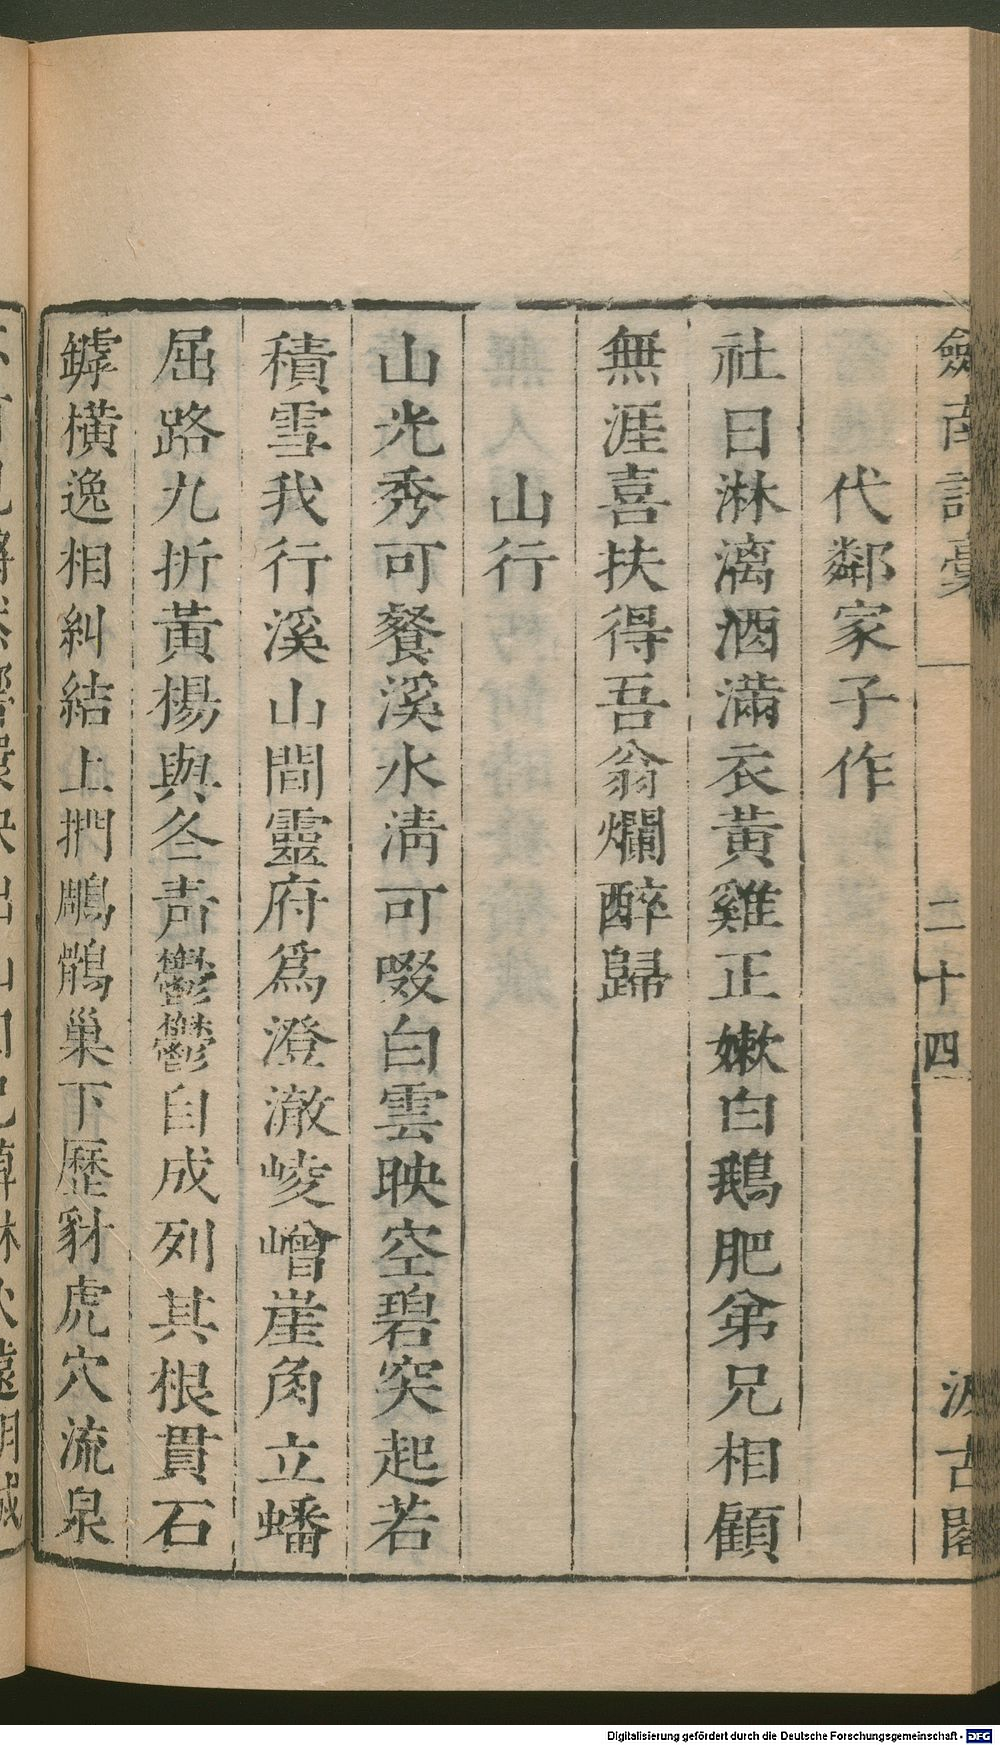 劍南詩稾
二十四
汲古閣
代鄰家子作
社日淋漓酒滿衣黃雞正嫰白鵝肥弟兄相顧
無涯喜扶得吾翁爛醉歸
山行
山光秀可餐溪水淸可啜白雲映空碧突起若
積雪我行溪山間靈府爲澄澈崚嶒崖角立蟠
屈路九折黃楊與冬靑鬱鬱自成列其根貫石
罅橫逸相糾結上捫鵰鶻巢下歷豺虎穴流泉
Digitalisierung gefördert durch die Deutsche Forschungsgemeinschaft - DFG